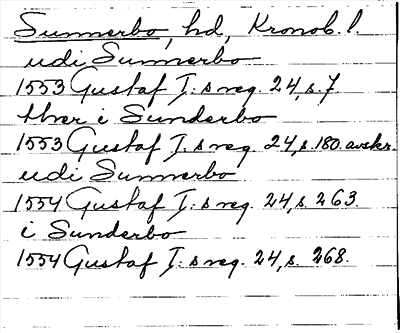 Sunnerbo, hd, Kronob. l.
udi Sunnerbo
1553 Gustaf I:s reg. 24, s. 7.
thær i Sunderbo
1553 Gustaf I:s reg. 24, s. 180. avskr.
udi Sunnerbo
1554 Gustaf I:s reg. 24, s. 263.
i Sunderbo
1554 Gustaf I:s reg. 24, s. 268.